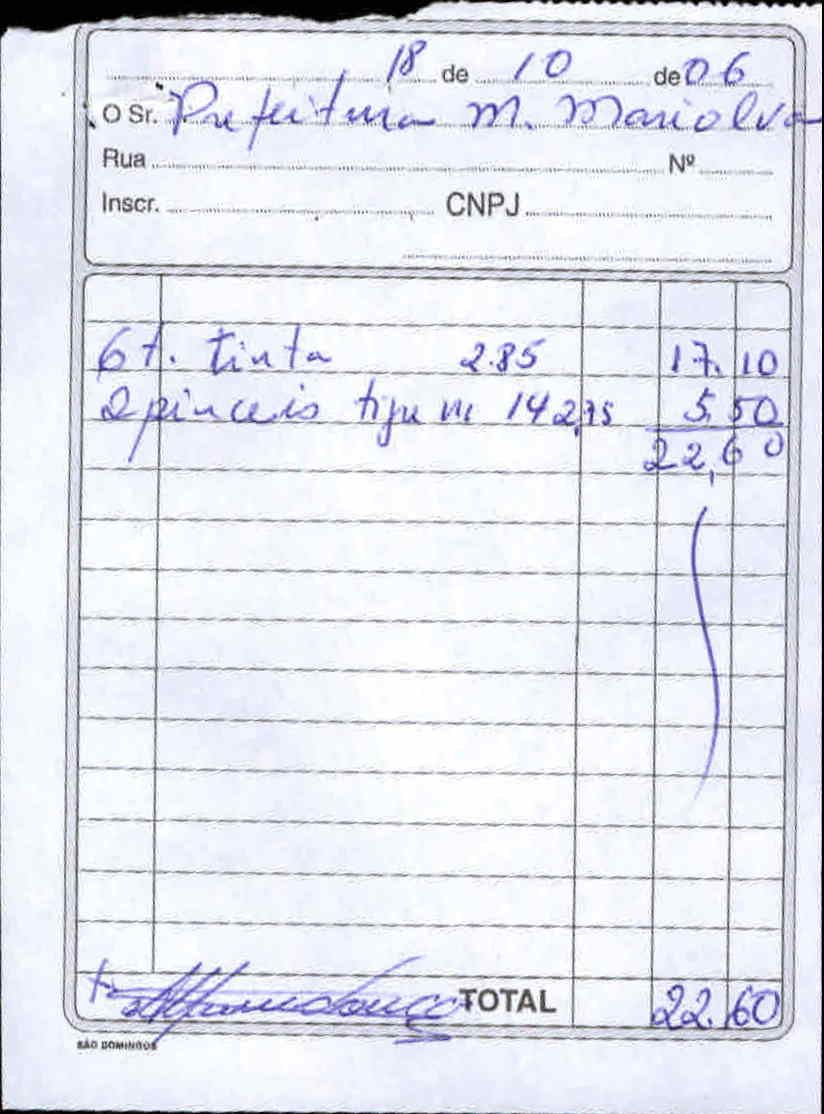 18 de 10 de 06
O Sr. Prefeitura M. Marialva
Rua Nº
Inscr. CNPJ
6 t. tinta 2.85 17.10
2 pinceis tigre nº 14 2,75 5,50
22,60
TOTAL 22.60
SÃO DOMINGOS